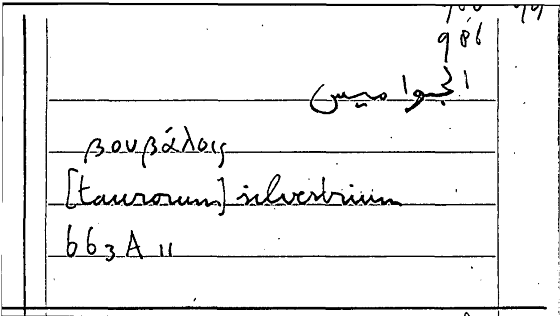 986
الجواميس
βουβάλοις
[taurorum] silvestrium
663 A 11